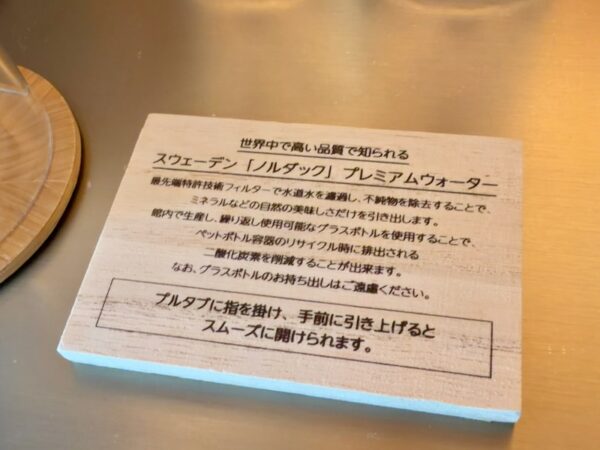 世界中で高い品質で知られる
スウェーデン「ノルダック」プレミアムウォーター
最先端特許技術フィルターで水道水を濾過し、不純物を除去することで、
ミネラルなどの自然の美味しさだけを引き出します。
館内で生産し、繰り返し使用可能なグラスボトルを使用することで、
ペットボトル容器のリサイクル時に排出される
二酸化炭素を削減することが出来ます。
なお、グラスボトルのお持ち出しはご遠慮ください。
プルタブに指を掛け、手前に引き上げると
スムーズに開けられます。